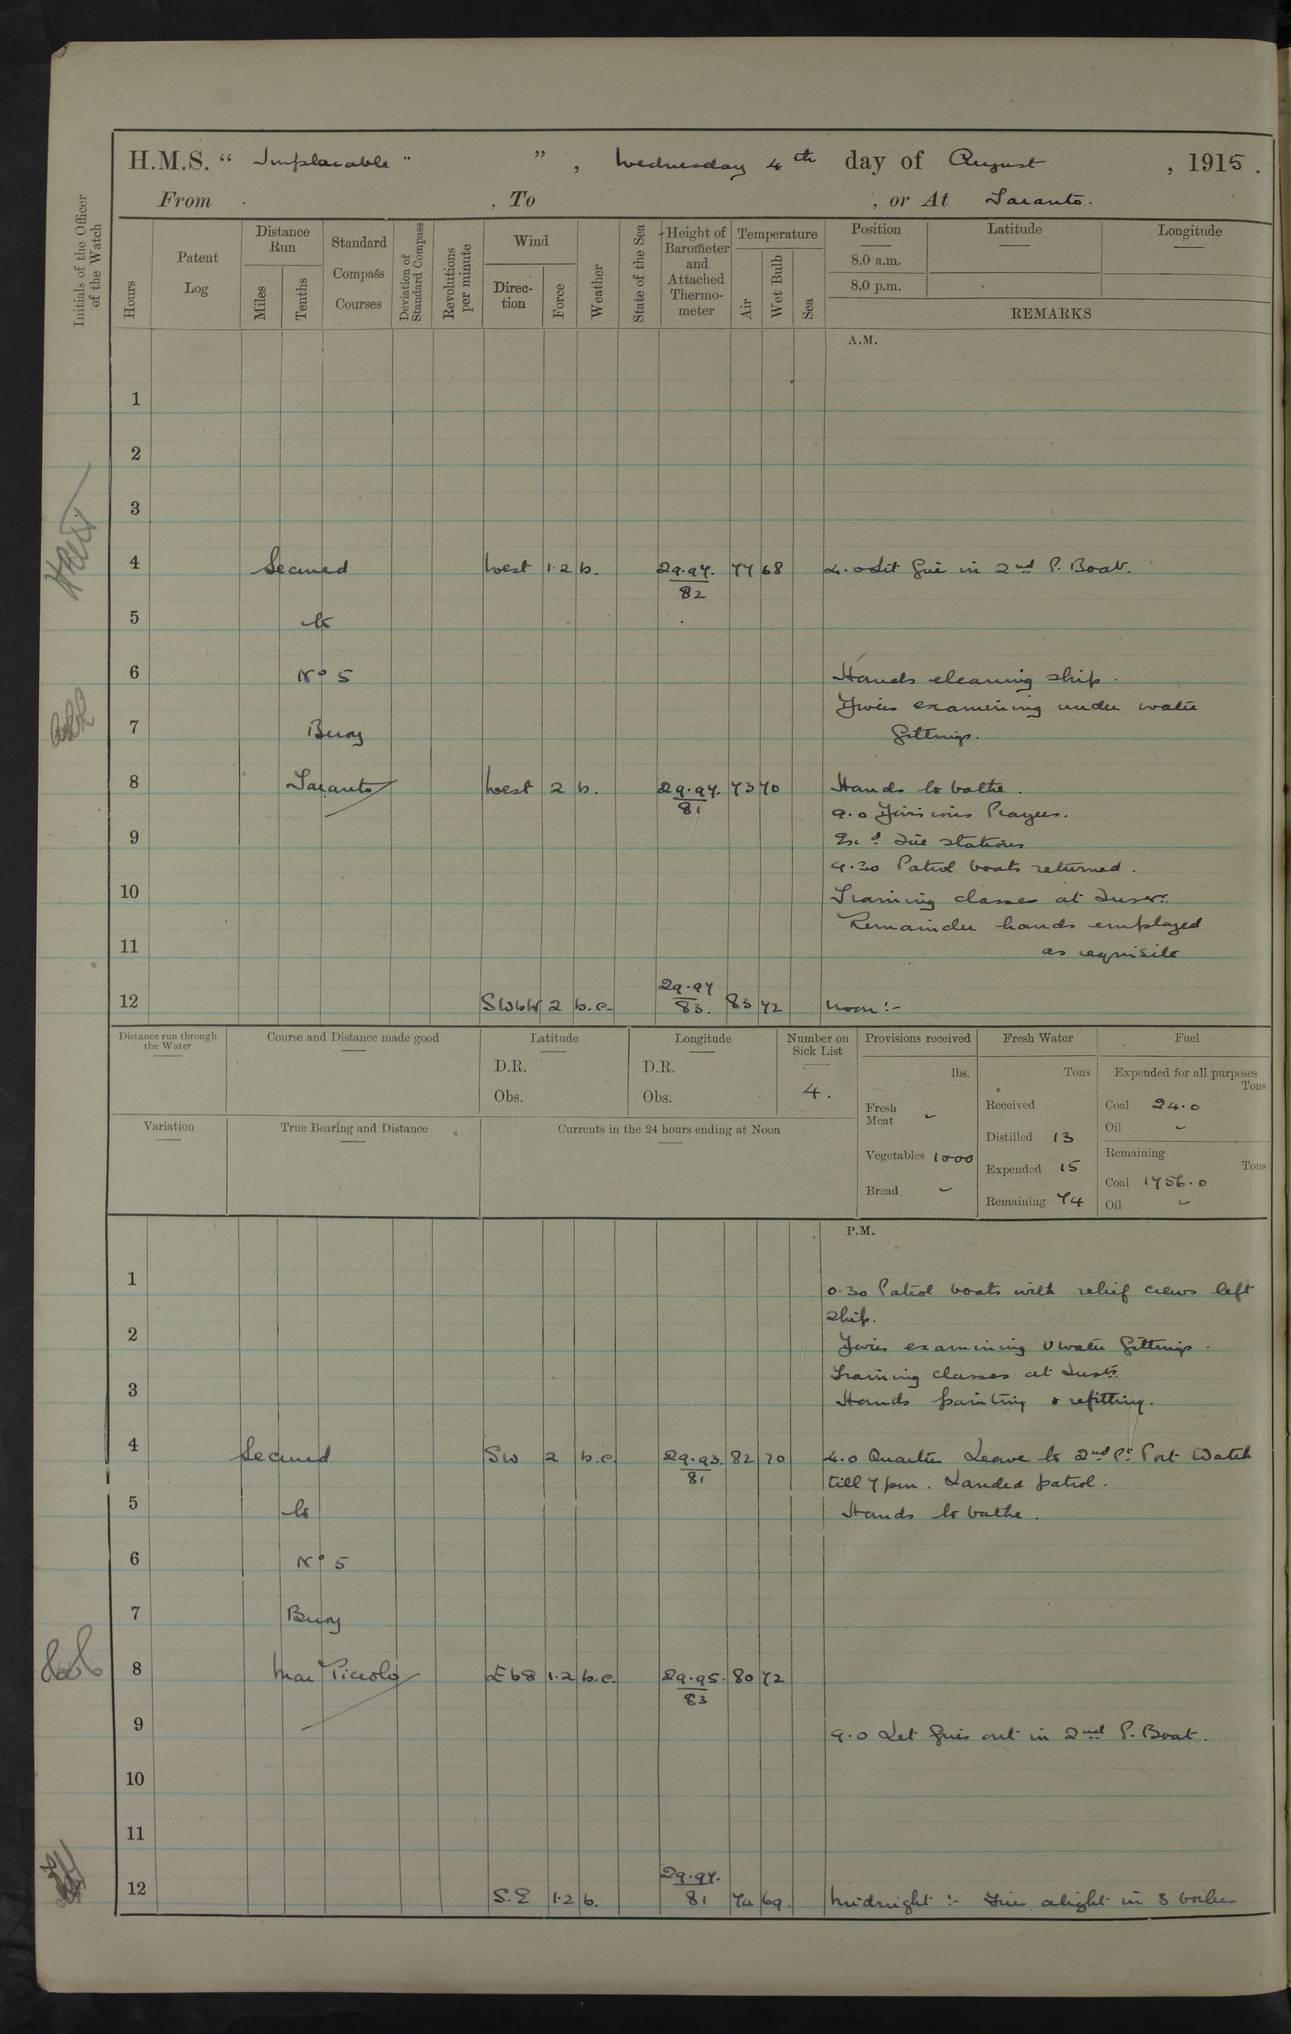 H.M.S. " Implacable " ", Wednesday 4th day of August, 1915.
From , To , or At Taranto.
Initials of the Officer of the Watch
Hours
Patent Log
Distance Run
Miles
Tenths
Standard Compass Courses
Deviation of Standard Compass
Revolutions per minute
Wind
Direction
Force
Weather
State of the Sea
Height of Barometer and Attached Thermometer
Temperature
Air
Wet Bulb
Sea
Position
8.0 a.m.
8.0 p.m.
Latitude
Longitude
REMARKS
A.M.
1
2
3
4 Secured West 1.2 b. 29.97. 82 77 68 4.0 Lit fire in 2nd P. Boat.
5 to
6 No 5 Hands cleaning ship.
Divers examining under water
7 Buoy fittings.
8 Taranto West 2 b. 29.97. 81 73 70 Hands to bathe.
9.0 Divisions Prayers.
9 Exd Fire stations
9.30 Patrol boats returned.
10 Training classes at Instr.
Remainder hands employed
11 as requisite
12 SWbW 2 b.c. 29.97 83. 83 72 Noon :-
Distance run through the Water
Course and Distance made good
Latitude
D.R.
Obs.
Longitude
D.R.
Obs.
Number on Sick List
4.
Provisions received
lbs.
Fresh Meat -
Vegetables 1000
Bread -
Fresh Water
Tons
Received
Distilled 13
Expended 15
Remaining 74
Fuel
Expended for all purposes
Tons
Coal 24.0
Oil -
Remaining
Tons
Coal 1756.0
Oil -
Variation
True Bearing and Distance
Currents in the 24 hours ending at Noon
P.M.
1 0.30 Patrol boats with relief crews left
ship.
2 Divers examining U water fittings.
Training classes at Instr.
3 Hands painting & refitting.
4 Secured SW 2 b.c. 29.93. 81 82 70 4.0 Quarters Leave to 2nd Pt Port Watch
till 7 pm. Landed patrol.
5 to Hands to bathe.
6 No 5
7 Buoy
8 Mar Piccolo EbS 1.2 b.c. 29.95. 83 80 72
9 9.0 Let fires out in 2nd P. Boat.
10
11
12 S.E 1.2 b. 29.97. 81 74 69. Midnight :- Fires alight in 3 boilers